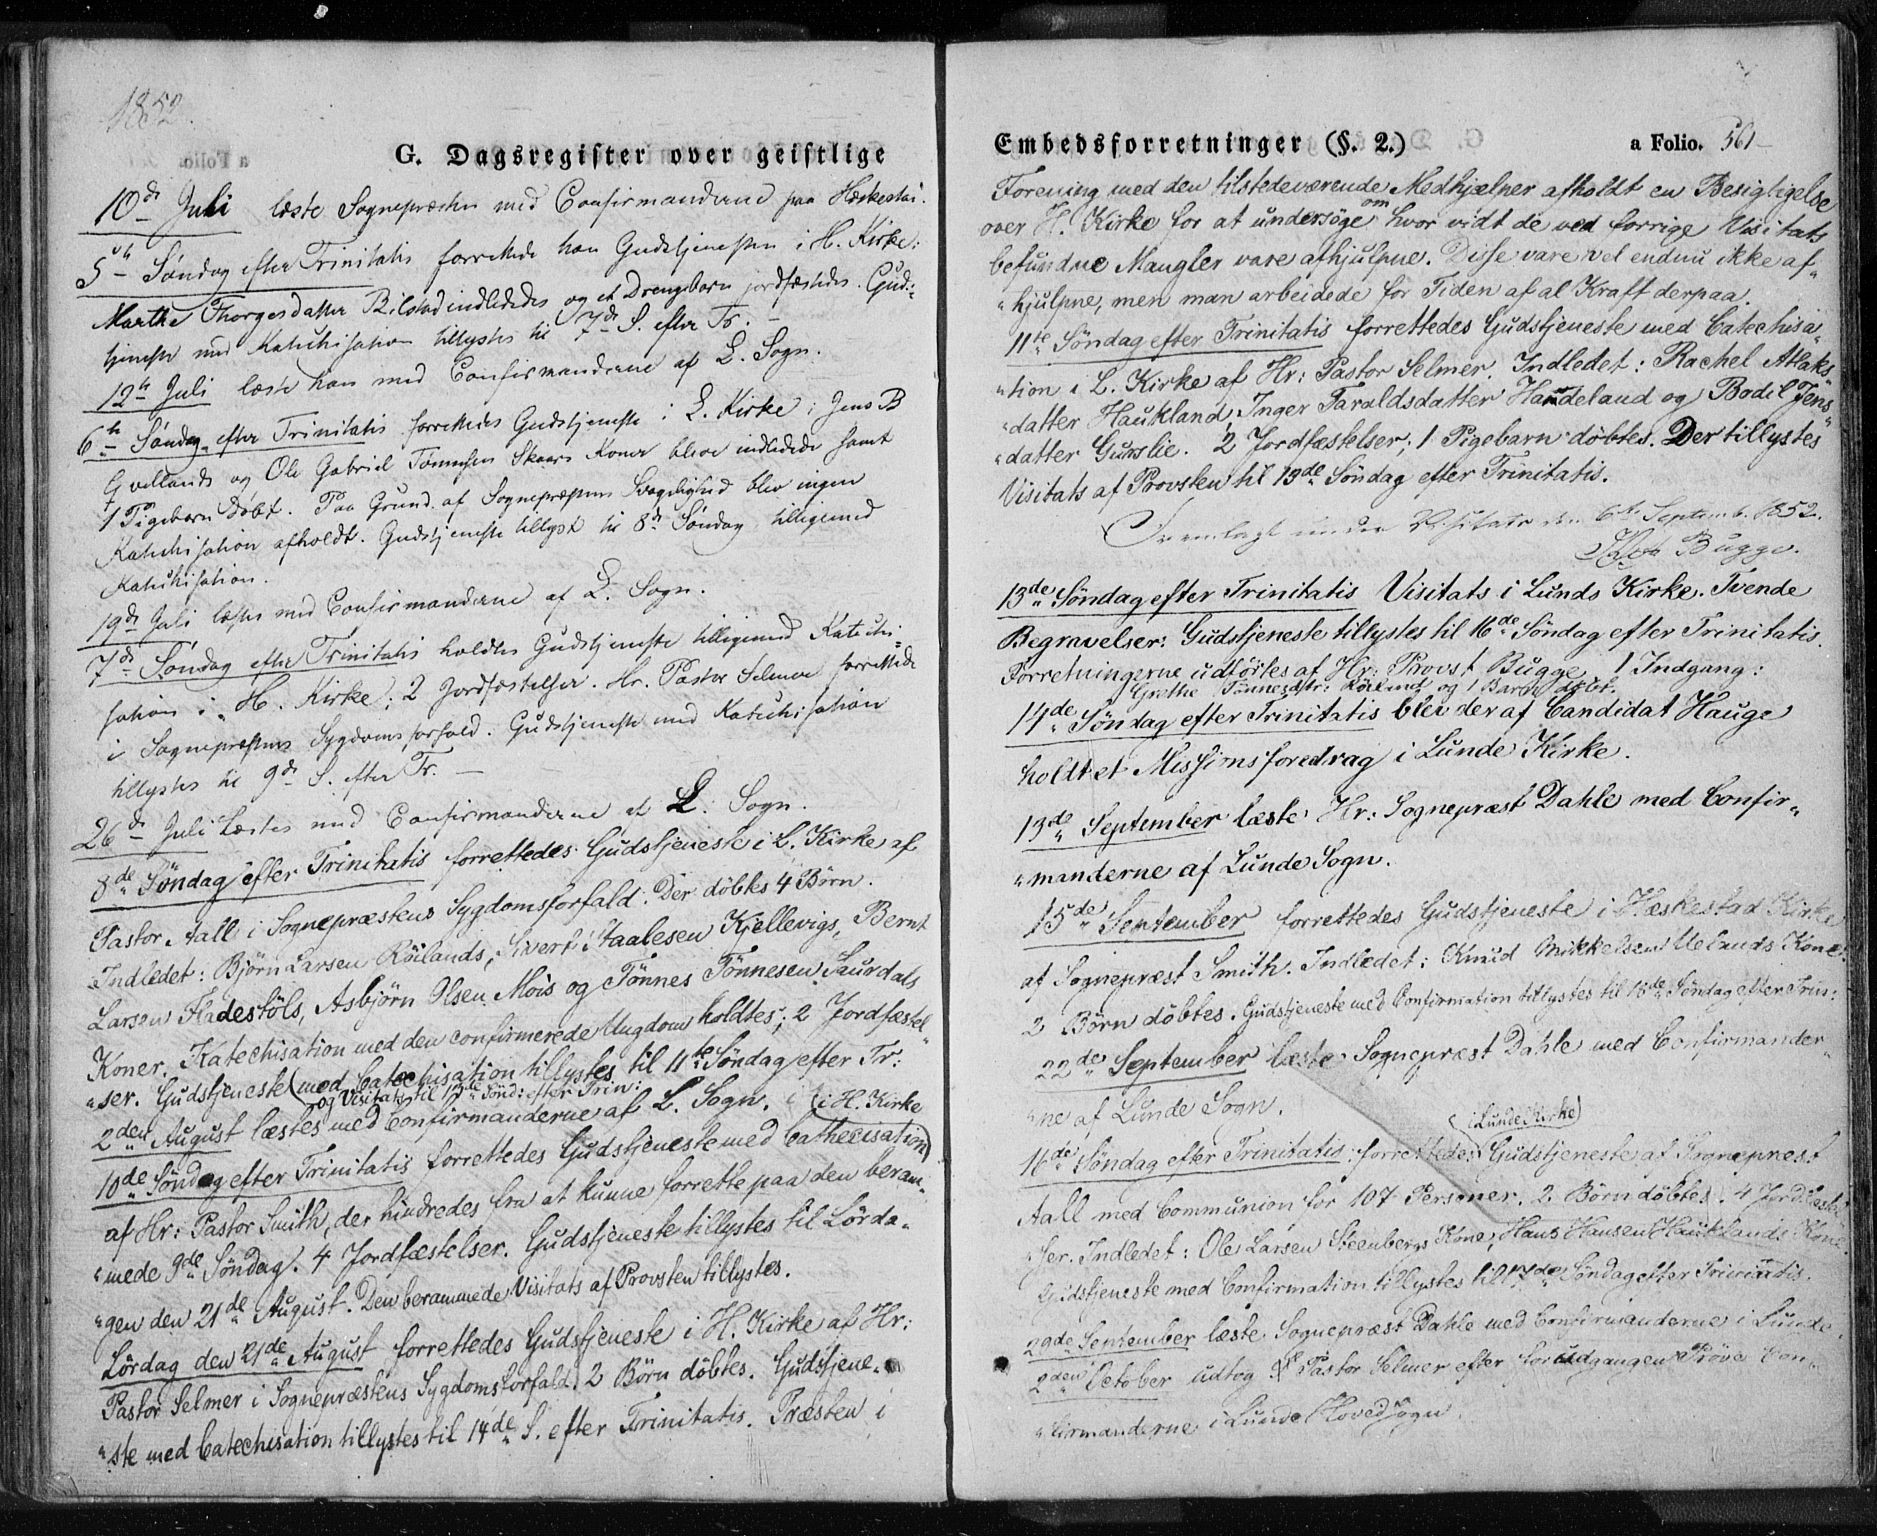 1852.
G. Dagsregister over geistlige
10de Juli læste Sognepræsten med Confirmanderne paa Hæskestad.
5te Søndag efter Trinitatis forrettede han Gudstjenesten i H. Kirke:
Marthe Thorgesdatter Bilstad indlededes og et Drengebarn jordfæstedes. Guds-
tjeneste med Katechisation tillystes til 7de S. efter Tr. –
12te Juli læste han med Confirmanderne af L. Sogn.
6te Søndag efter Trinitatis forrettedes Gudstjeneste i L. Kirke; Jens B
Gvellands og Ole Gabriel Tønnesen Skaars Koner bleve indledede samt
1 Pigebarn døbt. Paa Grund af Sognepræstens Svagelighed blev ingen
Katechisation afholdt. Gudstjeneste tillyst til 8de Søndag tilligemed
Katechisation.
19de Juli læstes med Confirmanderne af L. Sogn.
7de Søndag efter Trinitatis holdtes Gudstjeneste tilligemed Katechi-
sation i H. Kirke; 2 Jordfæstelser. Hr. Pastor Selmer forrettede
i Sognepræstens Sygdomsforfald. Gudstjeneste med Katechisation
tillystes til 9de S. efter Tr. –
26de Juli læstes med Confirmanderne af L. Sogn.
8de Söndag efter Trinitatis forrettedes Gudstjeneste i L. Kirke af
Pastor Aall i Sognepræstens Sygdomsforfald. Der döbtes 4 Børn.
Indledet: Björn Larsen Röilands, Sivert Staalesen Kjellevigs, Bernt
Larsen Fladestöls, Asbjörn Olsen Mois og Tönnes Tönnesen Saurdals
Koner. Katechisation med den confirmerede Ungdom holdtes; 2 Jordfæstel"
"ser. Gudstjeneste (med Catechisation tillystes til 11te Söndag efter Tr:
og Visitats til 13de Sönd: efter Trin:
2den August læstes med Confirmanderne af L. Sogn. (i H. Kirke
10de Söndag efter Trinitatis forrettedes Gudstjeneste med Cathecisation)
af Hr: Pastor Smith, der hindredes fra at kunne forrette paa den beram"
"mede 9de Söndag. 4 Jordfæstelser. Gudstjeneste tillystes til Lörda"
"gen den 21de August. Den berammede Visitats af Provsten tillystes.
Lördag den 21de August forrettedes Gudstjeneste i H. Kirke af Hr:
Pastor Selmer i Sognepræstens Sygdomsforfald. 2 Börn döbtes. Gudstjene"
"ste med Catechisation tillystes til 14de S. efter Trinitatis. Præsten i
Embedsforretninger (§. 2.)
a Folio. 561
Forening med den tilstedeværende Medhjælper afholdt en Besigtigelse
over H. Kirke for at undersöge om hvor vidt de ved forrige Visitats
befundne Mangler vare afhjulpne. Disse vare vel endnu ikke af"
"hjulpne, men man arbeidede for Tiden af al Kraft derpaa.
11te Söndag efter Trinitatis forrettedes Gudstjeneste med Catechisa"
"tion i L. Kirke af Hr: Pastor Selmer. Indledet: Rachel Atlaks"
"datter Haukland, Inger Taraldsdatter Handeland og Bodil Jens"
"datter Gurslie. 2 Jordfæstelser; 1 Pigebarn döbtes. Der tillystes
Visitats af Provsten til 13de Söndag efter Trinitatis.
Fremlagt under Visitats den 6te Septemb. 1852.
Bugge.
13de Söndag efter Trinitatis Visitats i Lunds Kirke. Tvende
Begravelser: Gudstjeneste tillystes til 16de Söndag efter Trinitatis.
Forretningerne udförtes af Hr: Provst Bugge. 1 Indgang:
Grethe Tönnesdtr: Röiland og 1 Barn döbt.
14de Söndag efter Trinitatis blev der af Candidat Hauge
holdt et Missionsforedrag i Lunde Kirke.
13de September læste Hr: Sognepræst Dahle med Confir"
"manderne af Lunde Sogn.
15de September forrettedes Gudstjeneste i Hæskestad Kirke
af Sognepræst Smith. Indledet: Knud Mikkelsen Uelands Kone.
2 Börn döbtes. Gudstjeneste med Confirmation tillystes til 18de Söndag efter Trin:
22de September læste Sognepræst Dahle med Confirmander"
"ne af Lunde Sogn.
(i Lunde Kirke)
16de Söndag efter Trinitatis forrettedes Gudstjeneste af Sognepræst
Aall med Communion for 107 Personer. 2 Börn döbtes. 4 Jordfæstel"
"ser. Indledet: Ole Larsen Steenbergs Kone, Hans Hansen Hauklands Kone.
Gudstjeneste med Confirmation tillystes til 17de Söndag efter Trinitatis.
29de September læste Sognepræst Dahle med Confirmanderne i Lunde.
2den October udtog Pastor Selmer efter forudgangen Pröve Con"
"firmanderne i Lunde Hovedsogn.